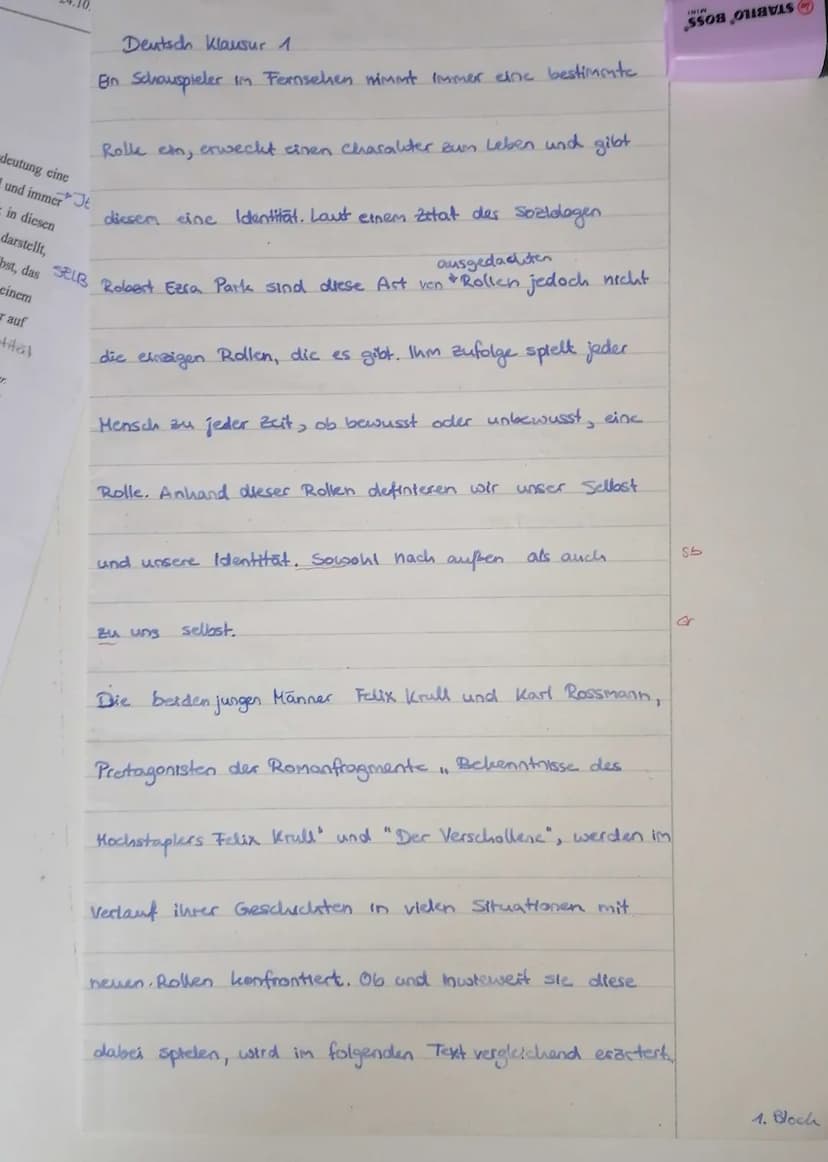 24.10.
STABILO BOSS
MINI
Deutsch Klausur 1
Ein Schauspieler im Fernsehen nimmt immer eine bestimmte
Rolle ein, erweckt einen Charakter zum Leben und gibt
diesem eine Identität. Laut einem Zitat des Soziologen
ausgedachten
Robert Ezra Park sind diese Art von Rollen jedoch nicht
die einzigen Rollen, die es gibt. Ihm zufolge spielt jeder
Mensch zu jeder Zeit, ob bewusst oder unbewusst, eine
Rolle. Anhand dieser Rollen definieren wir unser Selbst
und unsere Identität. Sowohl nach außen als auch
Sb
zu uns selbst.
Gr
Die beiden jungen Männer Felix Krull und Karl Rossmann,
Protagonisten der Romanfragmente „Bekenntnisse des
Hochstaplers Felix Krull" und "Der Verschollene", werden im
Verlauf ihrer Geschichten in vielen Situationen mit
neuen Rollen konfrontiert. Ob und inwieweit sie diese
dabei spielen, wird im folgenden Text vergleichend erörtert.
1. Block
deutung eine
und immer
in diesen
darstellt,
bst, das
SELB
einem
r auf